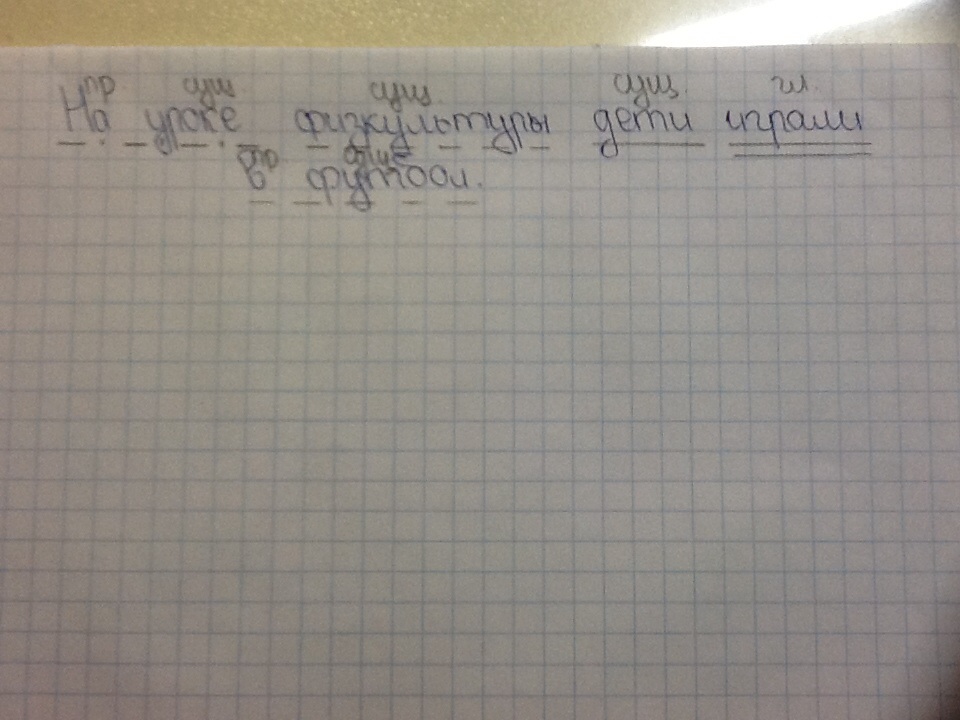 пр сущ сущ. сущ. гл.
На урске физкультуры дети играли
пр сущ
в футбол.